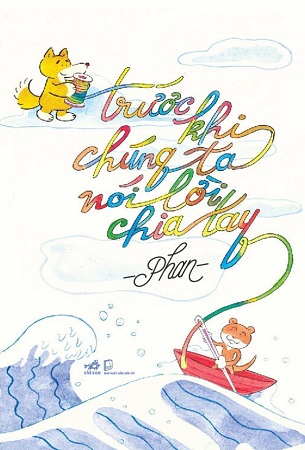 trước khi
chúng ta
nói lời
chia tay
-phan-
nhã nam